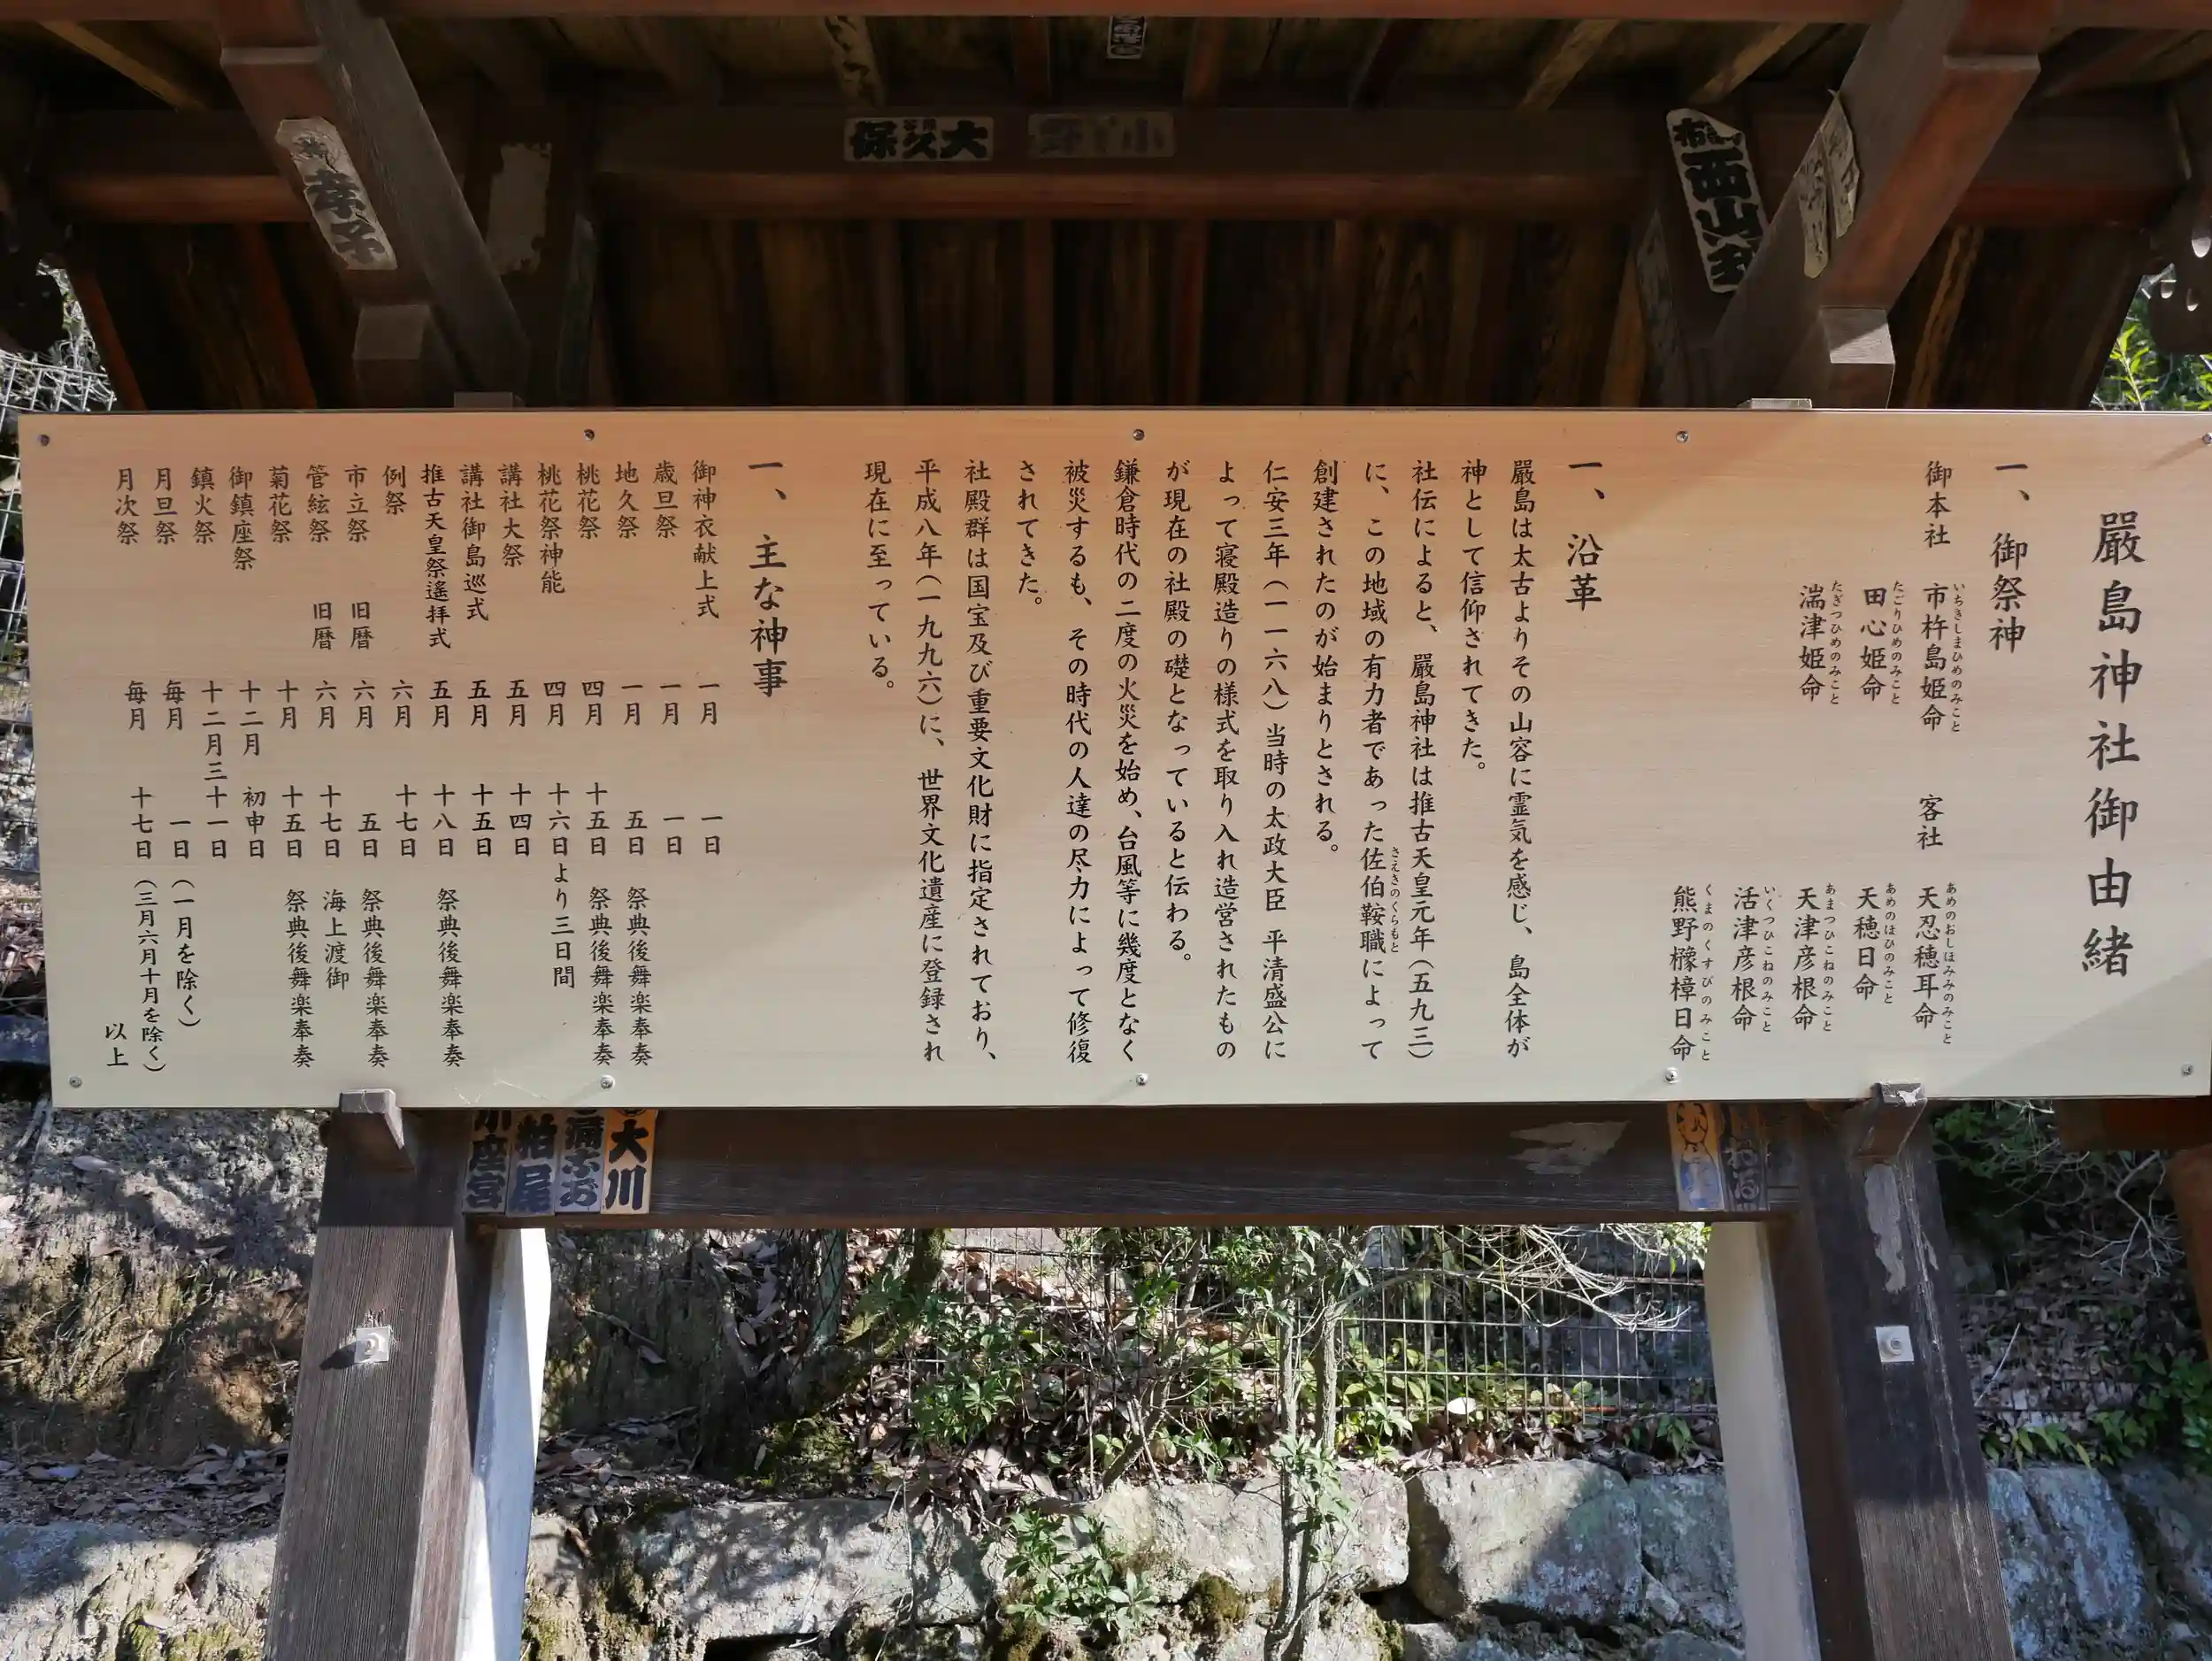 嚴島神社御由緒
一、御祭神
御本社 市杵島姫命 客社 天忍穂耳命
いちきしまひめのみこと あめのおしほみみのみこと
田心姫命 天穂日命
たごりひめのみこと あめのほひのみこと
湍津姫命 天津彦根命
たぎつひめのみこと あまつひこねのみこと
活津彦根命
いくつひこねのみこと
熊野櫲樟日命
くまのくすびのみこと
一、沿革
嚴島は太古よりその山容に霊気を感じ、島全体が
神として信仰されてきた。
社伝によると、嚴島神社は推古天皇元年(五九三)
に、この地域の有力者であった佐伯鞍職によって
さえきのくらもと
創建されたのが始まりとされる。
仁安三年(一一六八)当時の太政大臣 平清盛公に
よって寝殿造りの様式を取り入れ造営されたもの
が現在の社殿の礎となっていると伝わる。
鎌倉時代の二度の火災を始め、台風等に幾度となく
被災するも、その時代の人達の尽力によって修復
されてきた。
社殿群は国宝及び重要文化財に指定されており、
平成八年(一九九六)に、世界文化遺産に登録され
現在に至っている。
一、主な神事
御神衣献上式 一月 一日
歳旦祭 一月 一日
地久祭 一月 五日 祭典後舞楽奉奏
桃花祭 四月 十五日 祭典後舞楽奉奏
桃花祭神能 四月 十六日より三日間
講社大祭 五月 十四日
講社御島巡式 五月 十五日
推古天皇祭遙拝式 五月 十八日 祭典後舞楽奉奏
例祭 六月 十七日
市立祭 旧暦 六月 五日 祭典後舞楽奉奏
管絃祭 旧暦 六月 十七日 海上渡御
菊花祭 十月 十五日 祭典後舞楽奉奏
御鎮座祭 十二月 初申日
鎮火祭 十二月三十一日
月旦祭 毎月 一日 (一月を除く)
月次祭 毎月 十七日 (三月六月十月を除く)
以上
大久保
西山
幸子
大川
柏尾